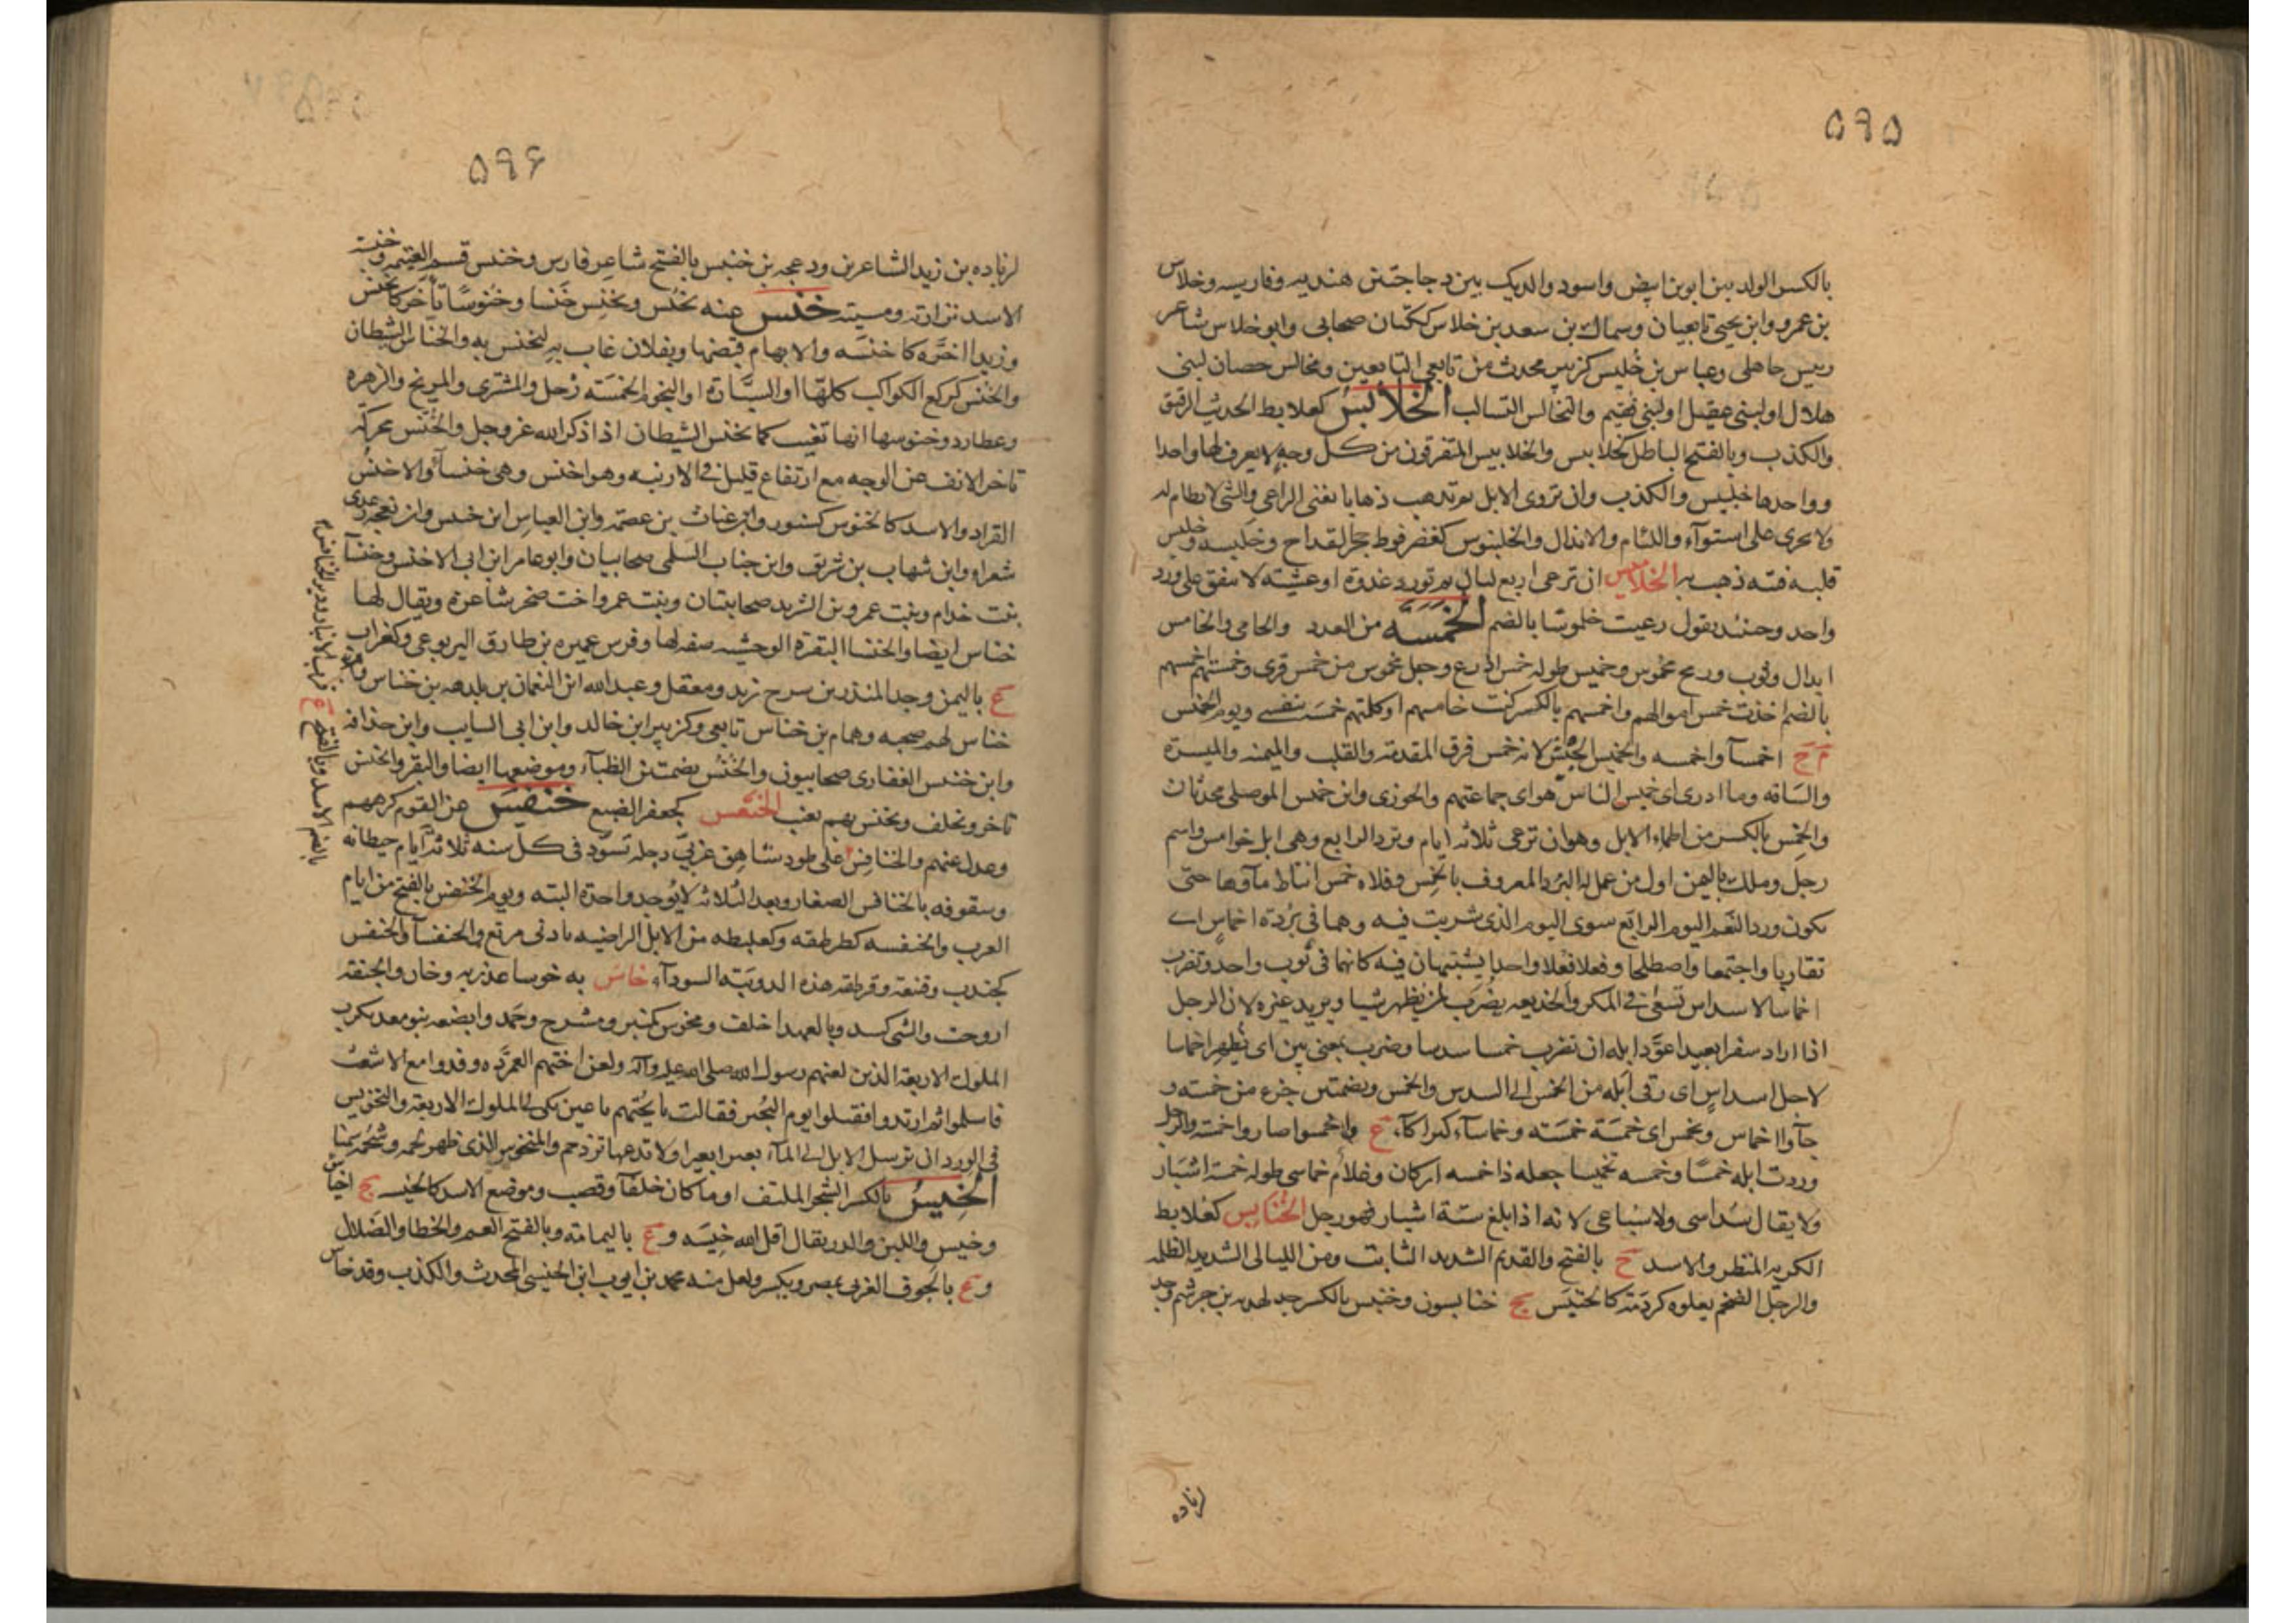 ۵۹۵
بالكسر الولد بين ابوين ابيض واسود والديك بين دجاجتين هنديه وفارسيه وخلاس
بن عمرو وابن يحيى تابعيان وسماك بن سعد بن خلاس ككتان صحابى وابو خلاس شاعر
رييس جاهلى وعباس بن خُليس كزبير محدث من تابعى التابعين ومخالس حصان لبنى
هلال او لبنى عقيل او لبنى فقيم والتخالس التسالب الخُلابِسُ كعلابط الحديث الرقيق
والكذب وبالفتح الباطل كخلابيس والخلابيس المتفرقون من كل وجه لا يعرف لها واحدا
وواحدها خلبيس والكذب وان تروى الابل ثم تذهب ذهابا يعنى الراعى والشى لا نظام له
ولا يجرى على استوآء واللئام والانذال والخلنبوس كعضرفوط حجر القداح وخلبسه وخلبس
قلبه فتنه ذهب به الخلاميس ان ترعى اربع ليال ثم تورد غدوة او عشيته لا يتفق على ورد
واحد وحينئذ يقول رعيت خلموسًا بالضم الخَمسه من العدد والخامى والخامس
ابدال وثوب ورمح مخموس وخميس طوله خمس اذرع وحبل مخموس من خمس قوى وخمستهم اخمسهم
بالضم اخذت خمس اموالهم واخمسهم بالكسر كنت خامسهم او كلتهم خمسة بنفسى ويوم الخميس
م ج اخمسآ واخمسه والخميس الجيش لانه خمس فرق المقدمة والقلب والميمنه والميسرة
والساقه وما ادرى اى خميس الناس هو اى جماعتهم والحوزى وابن خميس الموصلى محدثان
والخِمس بالكسر من اظماء الابل وهو ان ترعى ثلاثه ايام وترد الرابع وهى ابل خوامس واسم
رجل وملك باليمن اول من عمل له البرد المعروف بالخِمس وفلاه خمس انتاط مآوها حتى
يكون ورد النعم اليوم الرابع سوى اليوم الذى شربت فيه وهما فى بُردة اخماسٍ اى
تقاربا واجتمعا واصطلحا وفعلا فعلا واحدا يشتبهان فيه كانهما فى ثوب واحد وتضرب
اخماسا لاسداس تسعى فى المكر والخديعه يضرب لمن يظهر شيا ويريد غيره لان الرجل
اذا اراد سفرا بعيدا عوّد ابله ان تضرب خمسا سدسا وضرب بمعنى بين اى يُظهر اخماسا
لاجل اسداس اى رقى ابله من الخمس الى السدس والخمس وبضمتين جزء من خمسه و
جآوا خماس ومخمس اى خمسَة خمسَته وخماسآء كبراكآء ع واخمسوا صاروا خمسة والرجل
وردت ابله خمسًا وخمسه تخميسا جعله ذا خمسه اركان وغلام خماسى طوله خمسة اشبار
ولا يقال سُداسى ولا سُباعى لانه اذا بلغ ستّة اشبار فهو رجل الخُنَابِس كعُلابط
الكريه المنظر والاسد ج بالفتح والقديم الشديد الثابت ومن الليالى الشديد الظلمه
والرجل الضخم يعلوه كردَمَة كالخنبَس ج خنابسون وخنبس بالكسر جد لهدبه بن خشرم وجد
لزياده
۵۹۶
لزياده بن زيد الشاعرين ودعجه بن خنبس بالفتح شاعر فارس وخنبس قسم الغنيمه وخنبسة
الاسد تراته ومسيته خَنَس عنه يخنُس ويخنِس خَنسا وخُنوسًا تأخّر كانخنس
وزيدا اخّره كاخنسَه والابهام قبضها وبفلان غاب به كتخنس به والخنّاس الشيطان
والخُنّس كركع الكواكب كلها او السيّارة او النجوم الخمسَه زحل والمشترى والمريخ والزهره
وعطارد وخنوسها انها تغيب كما يخنس الشيطان اذا ذكر الله عز وجل والخَنَس محركة
تاخر الانف عن الوجه مع ارتفاع قليل فى الارنبه وهو اخنس وهى خنسآء والاخنس
القراد والاسد كالخنوس كسنور وابن غياث بن عصمه وابن العباس ابن خنيس وابن نعجه بن عدى
شعراء وابن شهاب بن شريق وابن جناب السلمى صحابيان وابو عامر ابن ابى الاخنس وخنسآ
بنت خدام وبنت عمرو بن الشريد صحابيتان وبنت عمرو اخت صخر شاعرة ويقال لها
خناس ايضا والخنسا البقرة الوحشيه صفه لها وفرس عميره بن طارق اليربوعى وكغراب
ع باليمن وجد المنذر بن سرح زيد ومعقل وعبد الله ابن النعمان بن بلدمه بن خناس وام
خناس لهم صحبه وهمام بن خناس تابعى وكزبير ابن خالد وابن ابى السايب وابن حذافه
وابن خنيس الغفارى صحابيون والخُنُس بضمتين الظبآء وموضعها ايضا والبقر وانخنس
تاخر وتخلف وتخنس بهم تغيب الخنبَعس كجعفر الضبع خنفس عن القوم كرههم
وعدل عنهم والخنافِس على طود شاهق غربىّ دجله تسوّد فى كل سنه ثلاثة ايام حيطانه
وسقوفه بالخنافس الصغار وبعد الثلاثه لا يُوجد واحدة البته ويوم الخنفس بالفتح من ايام
العرب والخنفسه كطرطبه وكعلبطه من الابل الراضيه بادنى مرتع والخنفسآ والخنفس
كجندب وقنفذ وقرطقه هذه الدويبّه السودآء خاسَ به خوسا غدر به وخان والجيفة
اروحت والشى كسد وبالعهد اخلف ومخوس كمنبر ومشرح وجَمد وابضعه بنو معديكرب
الملوك الاربعة الذين لعنهم رسول الله صلى الله عليه وآله ولعن اختهم العمرّده وفدوا مع الاشعث
فاسلموا ثم ارتدوا فقتلوا يوم النُجير فقالت نايحتهم يا عين بكى لى الملوك الاربعة والتخويس
فى الورد ان ترسل الابل الى المآء بعيرا بعيرا ولا تدعها تزدحم والمتخوس الذى ظهر لحمه وشحمه سمنا
الخِيسُ بالكسر الشجر الملتف او ما كان حلفآ وقصب وموضع الاسد كالخيسه ج اخياس
وخيس واللبن والدر يقال اقل الله خِيسَه و ع باليمامه وبالفتح الغم والخطا والضلال
و ع بالجوف الغربى بمصر ويكسر ولعل منه محمد بن ايوب ابن الخيسى المحدث والكذب وقد خاس
بالضم الاسد وبالفتح ع قرب الانبار ودير الخنافس